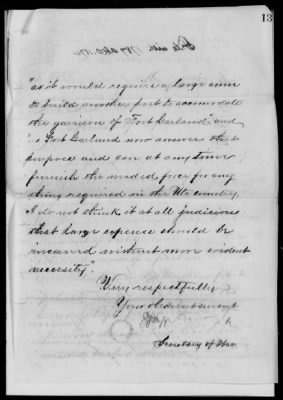 13
File with 1787 A.G.O. 1876
"as it would require a large sum
to build another post to accomodate
the garrison of "Fort Garland" and
as Fort Garland now answers that
purpose and can at any time
furnish the needed force for any
thing required in the Ute country,
I do not think it at all judicious
that large expense should be
incurred without more evident
necessity".
Very respectfully
Your obedient servant
Secretary of War